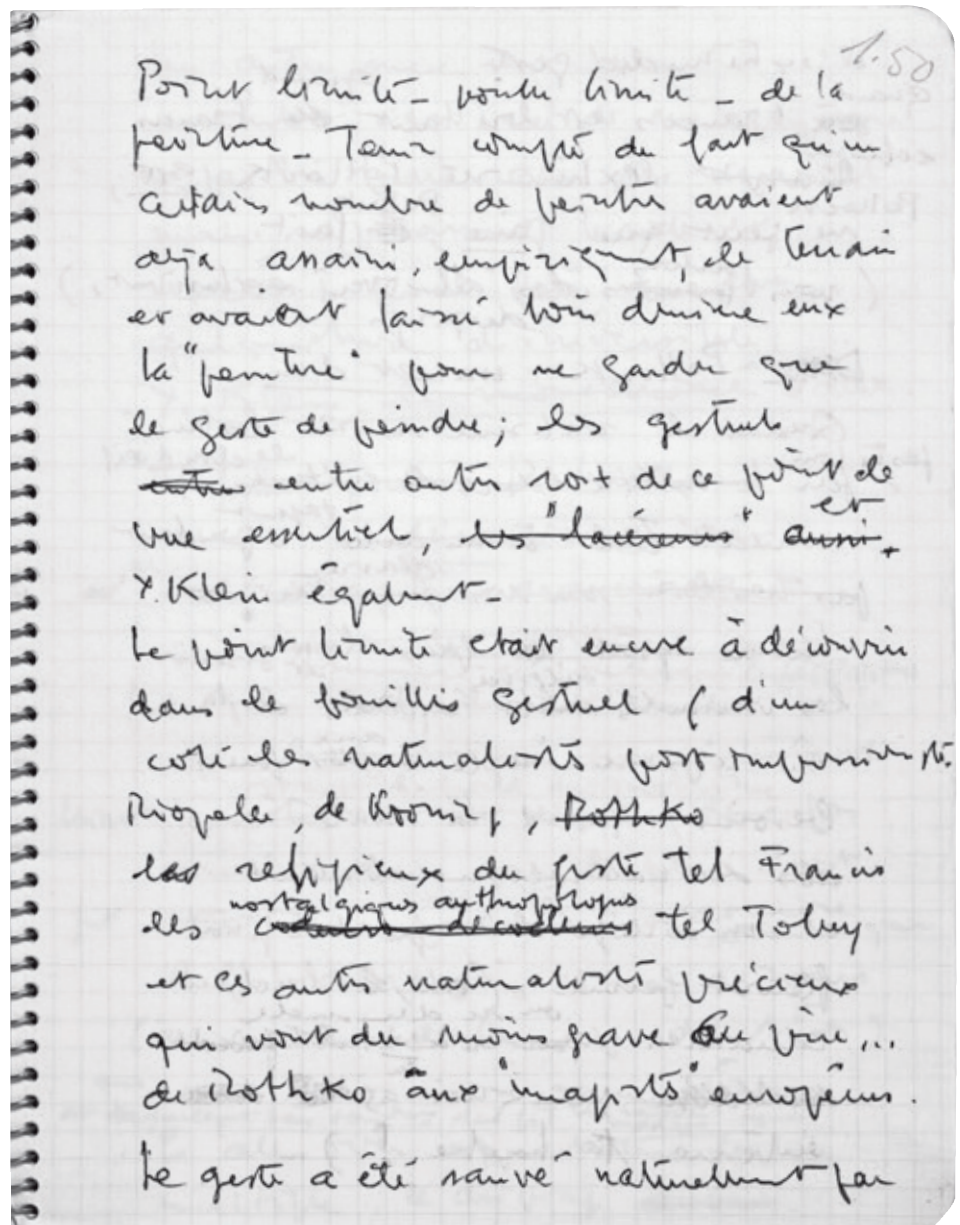 1.50
Point limite - pointe limite - de la
peinture - Tenir compte du fait qu'un
certain nombre de peintres avaient
déjà assaini, empiriqut, le terrain
et avaient laissé loin derrière eux
la "peinture" pour ne garder que
le geste de peindre, les gestuels
entre autres sont de ce point de
vue essentiels, les "lacérés" et aussi.
Y. Klein également -
Le point limite était encore à découvrir
dans le fouillis gestuel (d'un
coté les naturalistes post impressionnistes
Riopelle, de Kooning, Rothko
les religieux du geste tel Francis
nostalgiques
les tel Tobey
et ces autres naturalistes précieux
qui vont du moins grave au pire...
de Rothko aux "imagistes" européens.
Le geste a été sauvé naturellement par